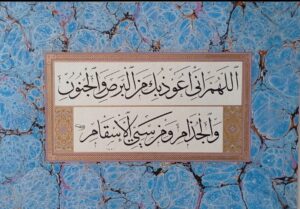 اللهم اني اعوذ بك من البرص والجنون
والجذام ومن سيئ الاسقام